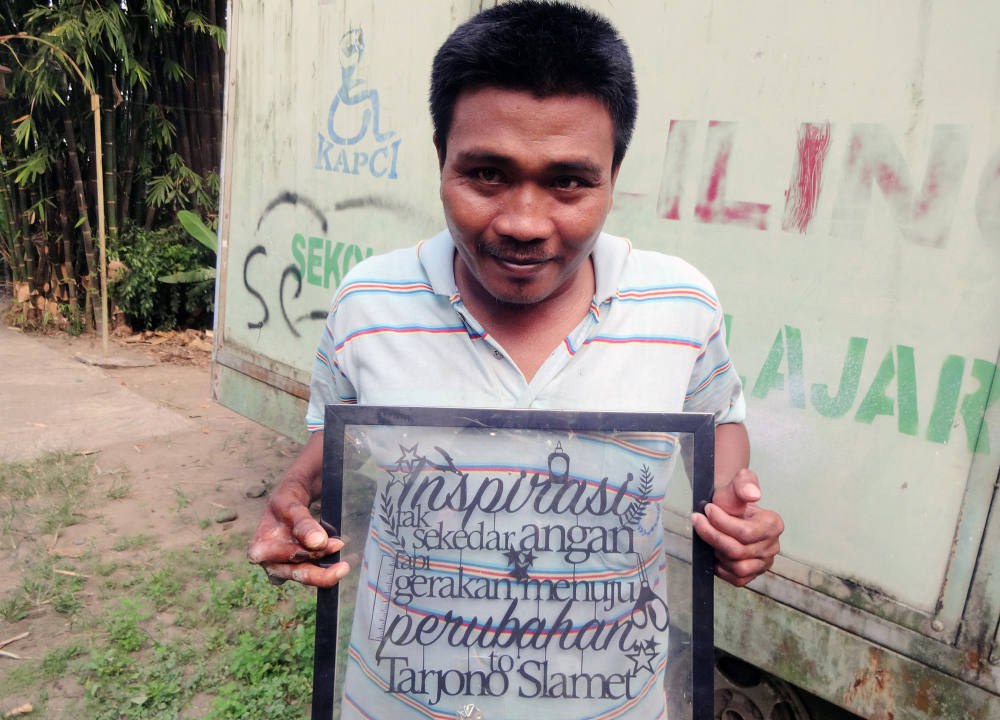 KAPCI
LILING
SEKOL
Se
LAJAR
Inspirasi
tak
sekedar angan
tapi
gerakan menuju
perubahan
to
Tarjono Slamet